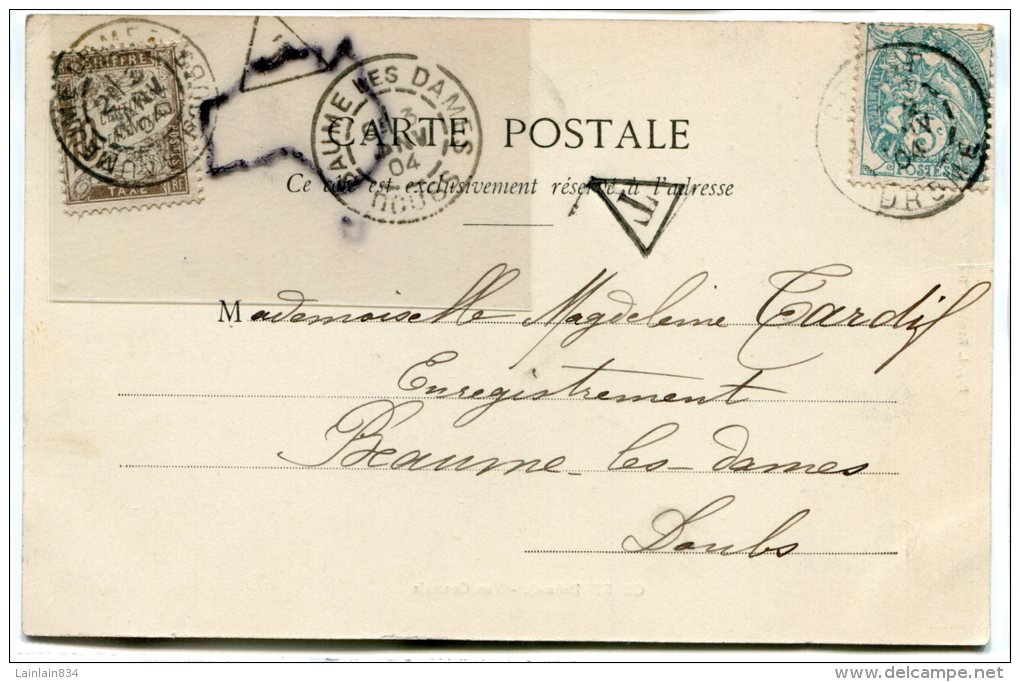 CHIFFRE
TAXE
BAUME LES DAMES
JANV
04
DOUBS
T
POSTES
04
DROME
CARTE POSTALE
Ce côté est exclusivement réservé à l'adresse
Mademoiselle Magdeleine Tardif
Enregistrement
Beaume-les-dames
Doubs
Lainlain834